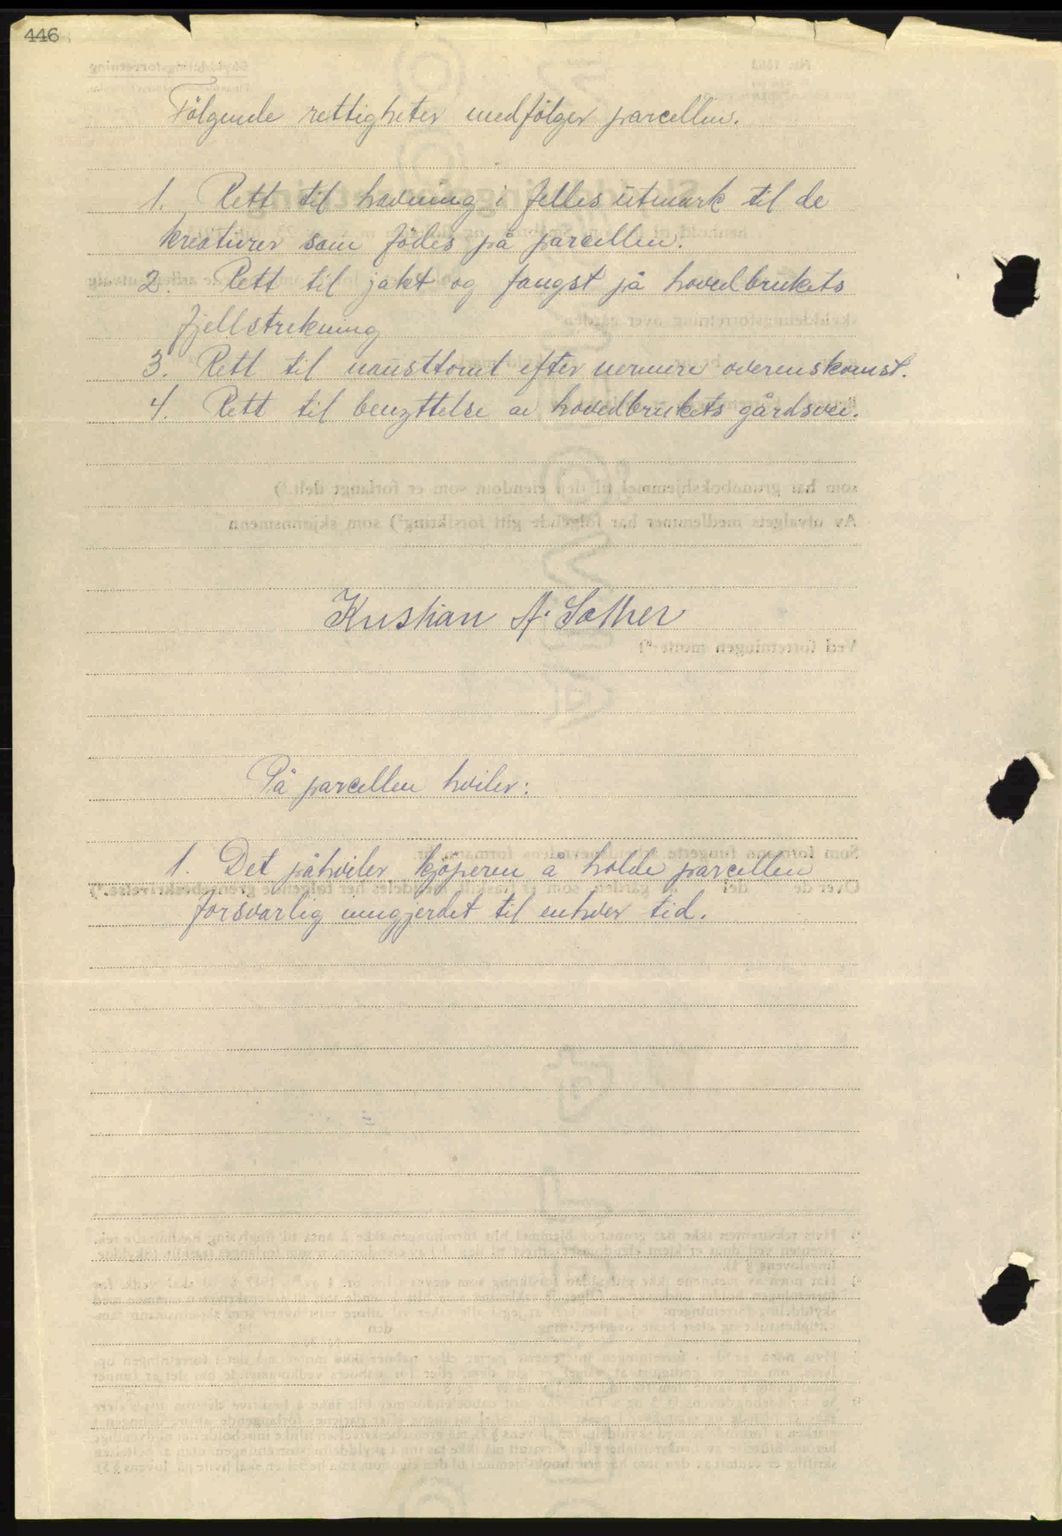 446
Følgende rettigheter medfølger parcellen.
1. Rett til havning i felles utmark til de
kreaturer som fødes på parcellen.
2. Rett til jakt og fangst på hovedbrukets
fjellstrekning
3. Rett til nausttomt efter nermere overenskomst.
4. Rett til benyttelse av hovedbrukets gårdsvei.
Kristian A. Sæther
På parcellen hviler:
1. Det påhviler kjøperen å holde parcellen
forsvarlig inngjerdet til enhver tid.